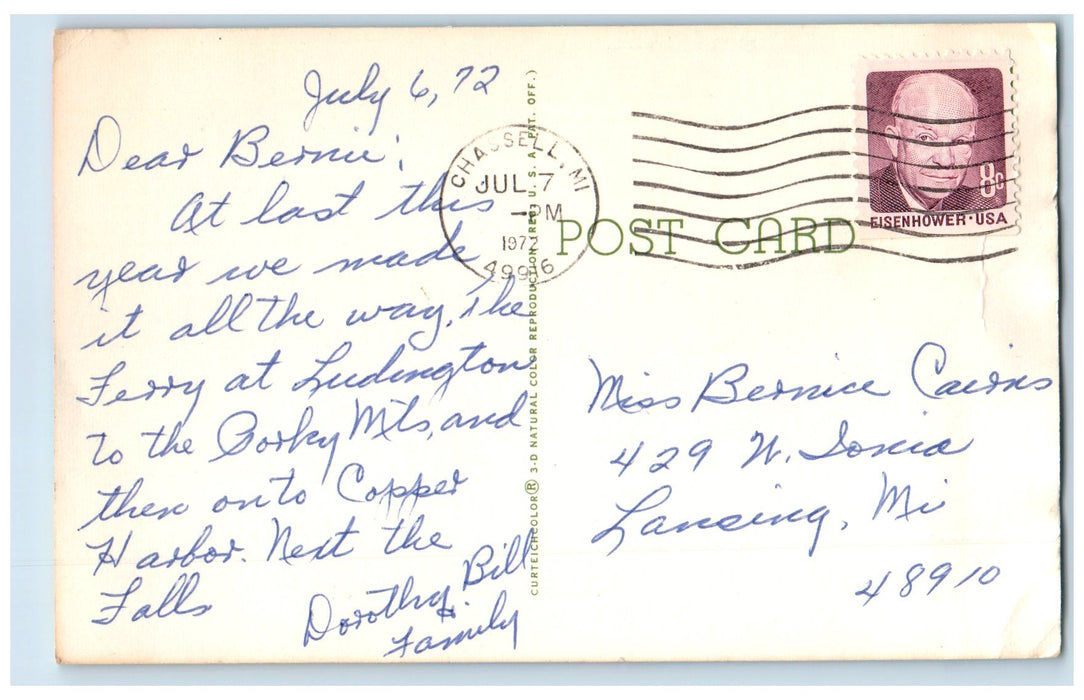 July 6, 72
Dear Bernie:
At last this
year we made
it all the way, the
Ferry at Ludington
to the Porky Mts, and
then on to Copper
Harbor. Next the
Falls
Dorothy, Bill
& Family
CURTEICHCOLOR® 3-D NATURAL COLOR REPRODUCTION (REG. U. S. A. PAT. OFF.)
CHASSELL, MI
JUL 7
PM
1972
POST CARD
8c
EISENHOWER·USA
Miss Bernice Cairns
429 W. Ionia
Lansing, Mi
48910